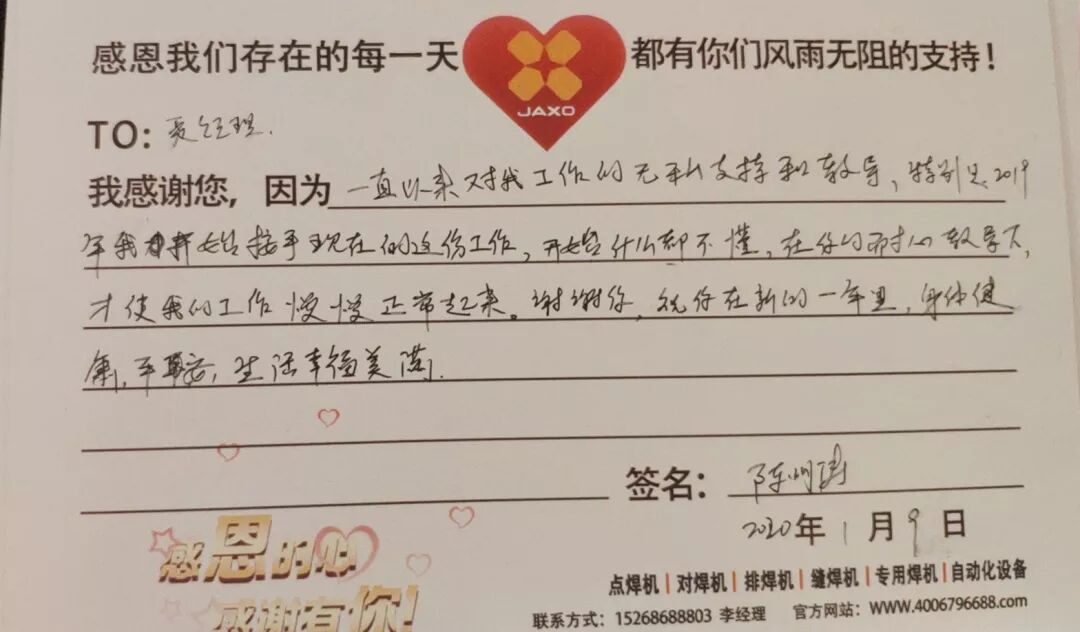 感恩我们存在的每一天 JAXO 都有你们风雨无阻的支持！
TO：聂经理.
我感谢您，因为一直以来对我工作的无私支持和教导，特别是2019
年我开始接手现在的这份工作，开始什么都不懂，在你的耐心教导下，
才使我的工作慢慢正常起来。谢谢你，祝你在新的一年里，身体健
康，平安，生活幸福美满.
签名：陈
2020年1月9日
感恩的心
感谢有你！
点焊机|对焊机|排焊机|缝焊机|专用焊机|自动化设备
联系方式：15268688803 李经理 官方网站：WWW.4006796688.com